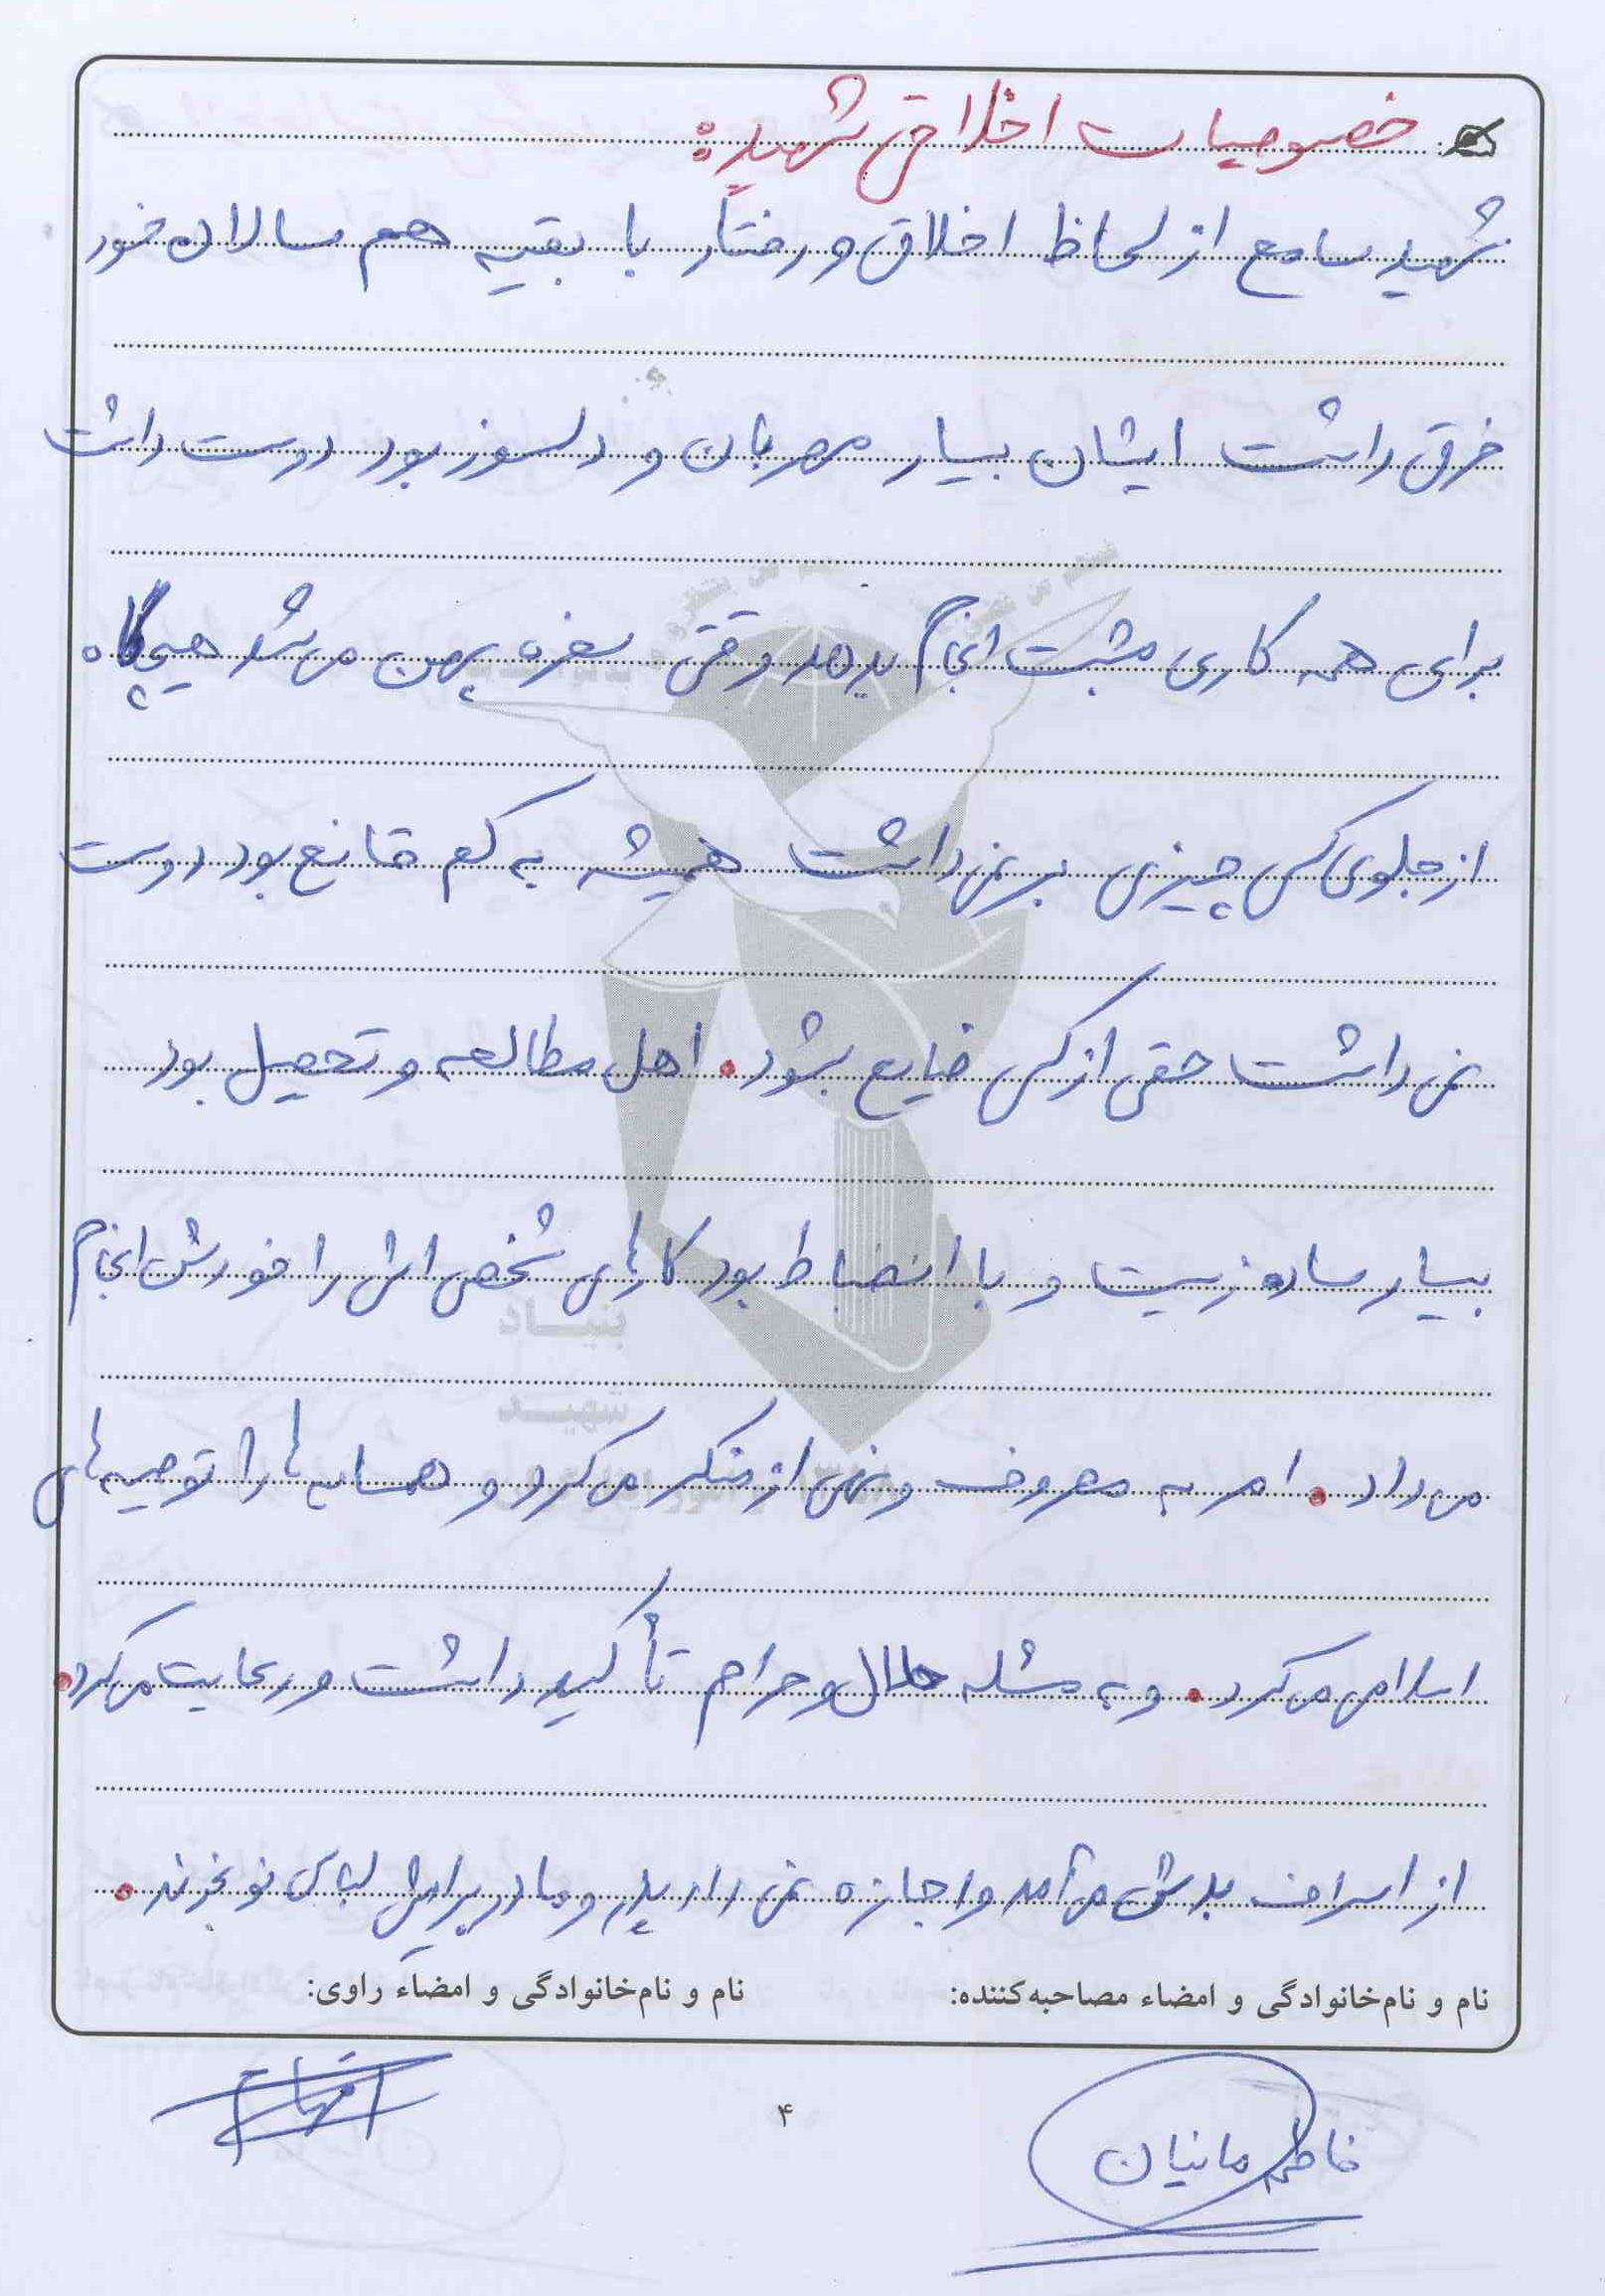 خصوصیات اخلاقی شهید:
شهید سامع از لحاظ اخلاق و رفتار با بقیه هم سالان خود
فرق داشت ایشان بسیار مهربان و دلسوز بود دوست داشت
برای همه کاری مثبت انجام بدهد وقتی سفره پهن می‌شد هیچگاه
از جلوی کسی چیزی برنمی‌داشت همیشه به کم قانع بود دوست
نمی‌داشت حقی از کسی ضایع بشود. اهل مطالعه و تحصیل بود
بسیار ساده زیست و با انضباط بود کارهای شخصی اش را خودش انجام
می‌داد. امر به معروف و نهی از منکر می‌کرد و همسایه ها را توصیه های
اسلامی می‌کرد. و به مسئله حلال و حرام تأکید داشت و رعایت می‌کرد.
از اسراف بدش می‌آمد و اجازه نمی‌داد پدر و مادر برایش لباس نو بخرند.
نام و نام‌خانوادگی و امضاء مصاحبه‌کننده: نام و نام‌خانوادگی و امضاء راوی:
فاطمه مانیان
۴
بنیاد
شهید